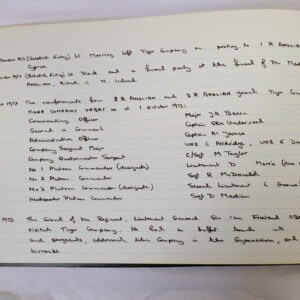 1973 (Sketch Entry) Lt Moring left Tiger Company on posting to 1 R ANGLIAN
Cyprus
1973 (Sketch Entry) Lt and a funeral party at the funeral of
ANGLIAN, killed in N Ireland
1973 The reinforcements from 2 R ANGLIAN and 3 R ANGLIAN joined Tiger
TIGER COMPANY ORBAT as at 1 October 1973:
Commanding Officer Major JA Bacon
Second in Command Captain SRH Underwood
Administration Officer Captain AI James
Company Sergeant Major WO2 C Aldridge, WO2 K
Company Quartermaster Sergeant C/Sgt M Taylor
No 1 Platoon Commander (designate) Lieutenant D
No 2 Platoon Commander Sgt R McDonald
No 3 Platoon Commander (designate) Second Lieutenant C
Headquarter Platoon Commander Sgt D
1973 The Colonel of the Regiment, Lieutenant General Sir Ian Freeland
visited Tiger Company. He had a buffet lunch with
and sergeants, addressed the Company in the Gymnasium, and
barracks